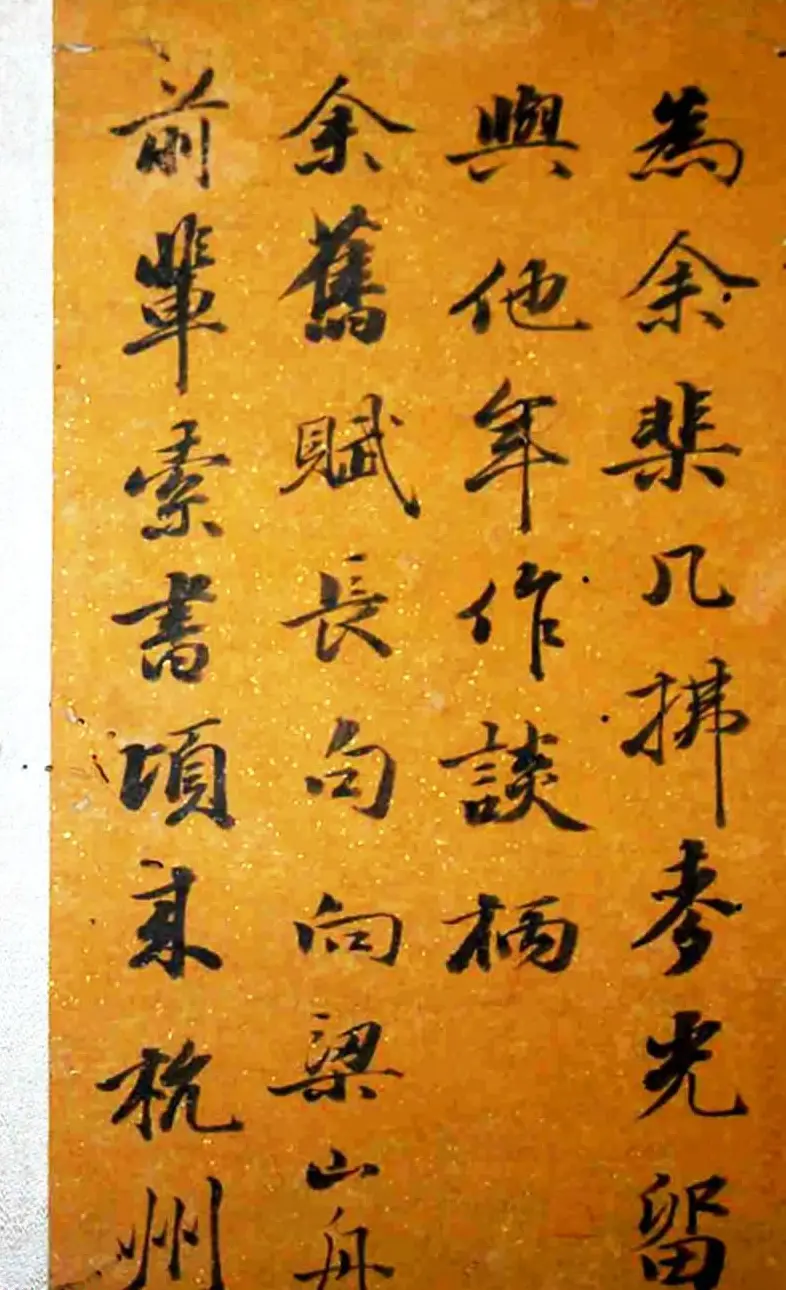 為余棐几拂麥光留
與他年作談柄
余舊賦長句向梁山舟
前輩索書頃來杭州